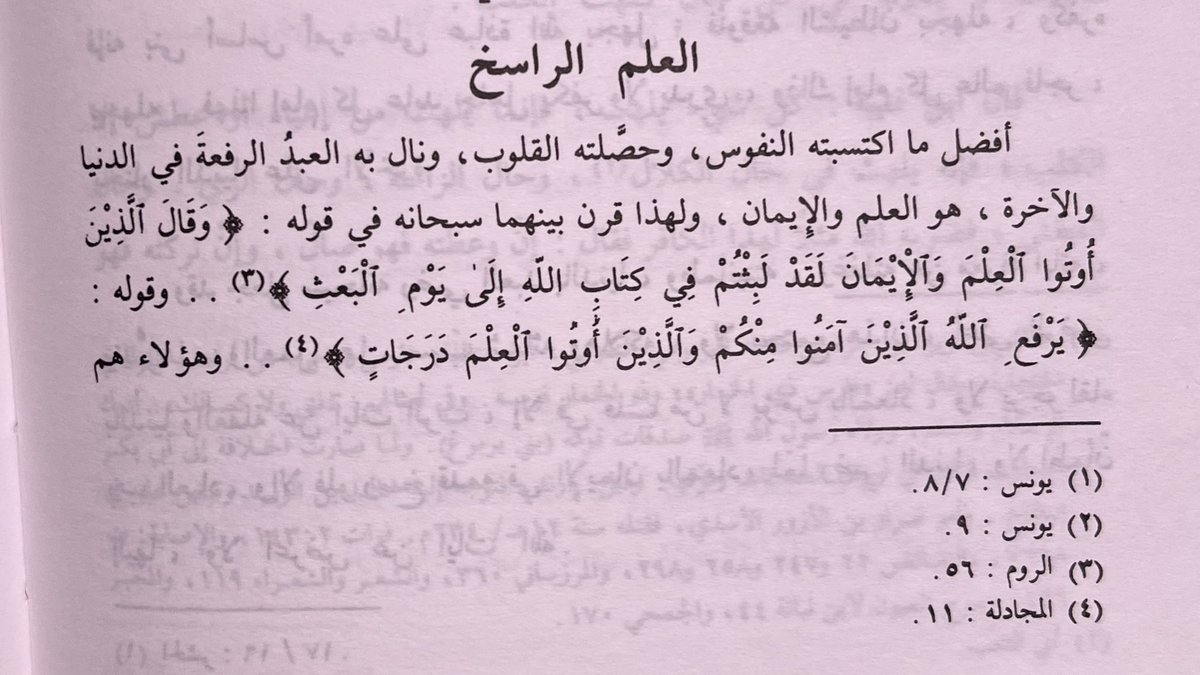 العلم الراسخ
أفضل ما اكتسبته النفوس، وحصَّلته القلوب، ونال به العبدُ الرفعةَ في الدنيا
والآخرة ، هو العلم والإيمان ، ولهذا قرن بينهما سبحانه في قوله : ﴿ وَقَالَ ٱلَّذِيْنَ
أُوتُوا ٱلْعِلْمَ وَٱلْإِيْمَانَ لَقَدْ لَبِثْتُمْ فِي كِتَابِ اللّهِ إِلَىٰ يَوْمِ ٱلْبَعْثِ ﴾(٣) . . وقوله :
﴿ يَرْفَعِ ٱللّهُ ٱلَّذِيْنَ آمَنُوا مِنْكُمْ وَٱلَّذِيْنَ أُوتُوا ٱلْعِلْمَ دَرَجَاتٍ ﴾(٤) . . وهؤلاء هم
(١) يونس : ٨/٧.
(٢) يونس : ٩.
(٣) الروم : ٥٦.
(٤) المجادلة : ١١.